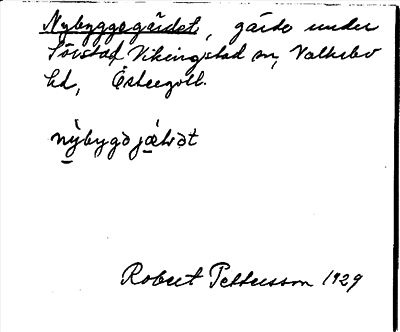 Nybyggegärdet, gärde under
Sörstad Vikingstad sn, Valkebo
hd, Östergötl.
Robert Pettersson 1929